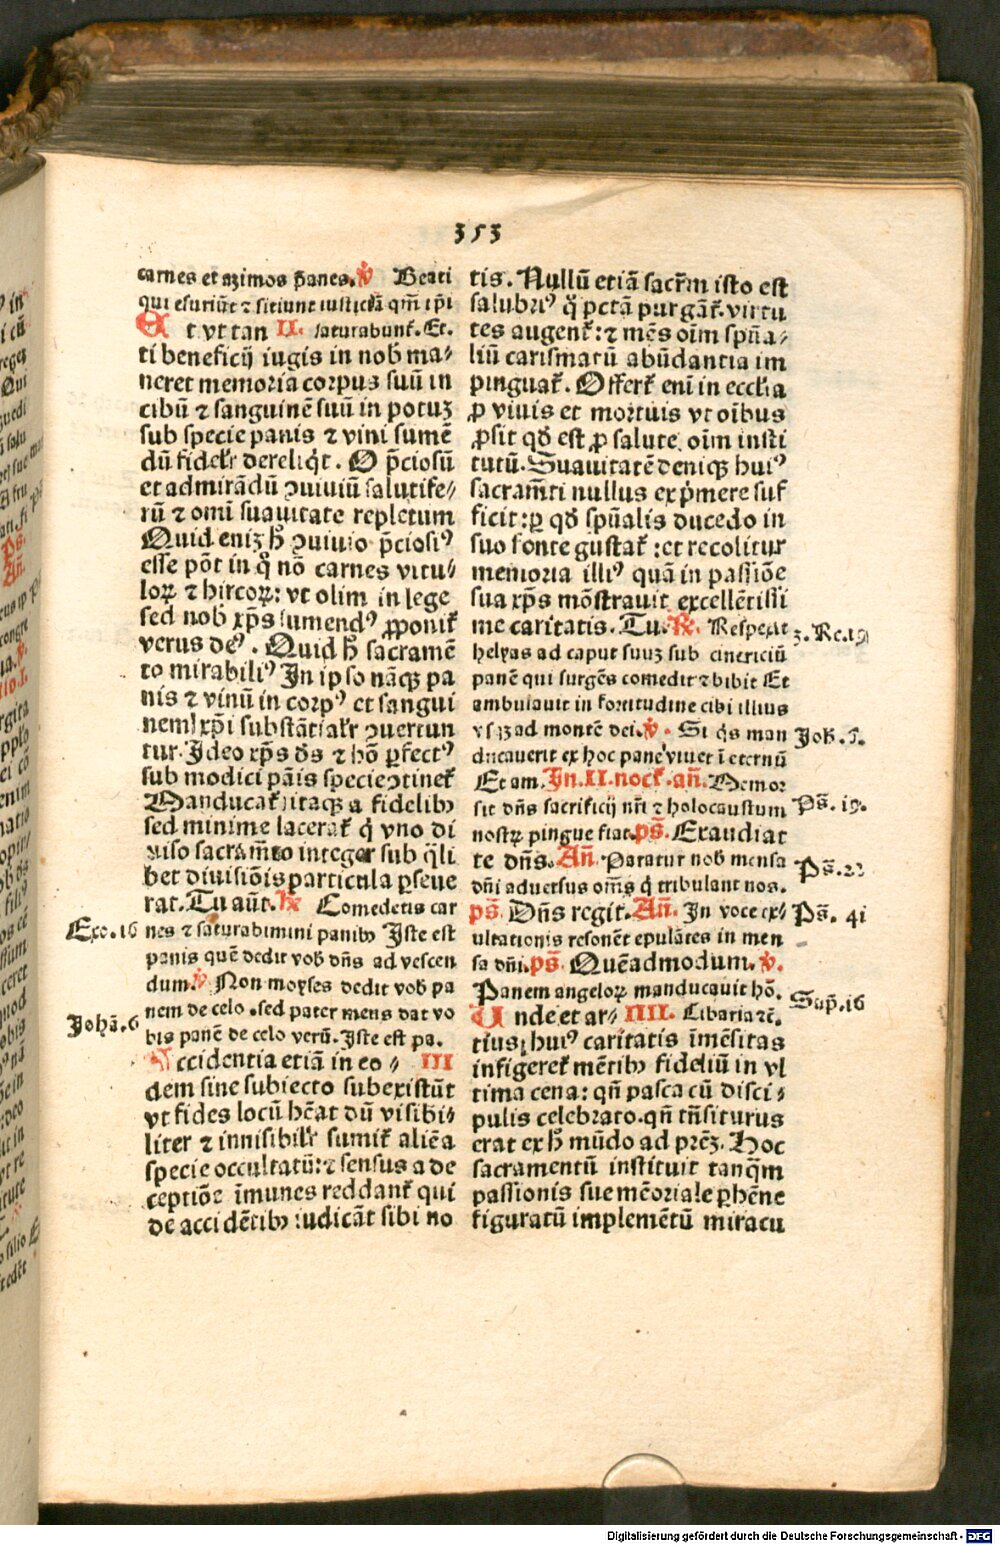 353
carnes et azimos p̄anes. ℣ Beati
qui esuriūt ⁊ sitiunt iusticiā qm̄ ip̄i
Et vt tan II. saturabunt̄. Et.
ti beneficij iugis in nob̄ ma⸗
neret memoria corpus suū in
cibū ⁊ sanguinē suū in potuꝫ
sub specie panis ⁊ vini sumē
dū fidel̄r dereliq̇t. O p̄ciosū
et admirādū ꝯuiuiū salutife⸗
rū ⁊ omī suauitate repletum
Quid eniꝫ h̄ ꝯuiuio p̄ciosiꝰ
esse pōt in q̊ nō carnes vitu⸗
loꝝ ⁊ hircoꝝ: vt olim in lege
sed nob̄ xp̄s sumendꝰ ꝓponit̄
verus deꝰ. Quid h̄ sacramē
to mirabiliꝰ In ipso nāqꝫ pa
nis ⁊ vinū in corpꝰ et sangui
nem xp̄i substātial̄r ꝯuertun
tur. Ideo xp̄s d̄s ⁊ hō ꝑfectꝰ
sub modici pāis specie ꝯtinet̄
Manducat̄ itaqꝫ a fidelibꝫ
sed minime lacerat̄ q̇ vno di
uiso sacram̄to integer sub q̄li
bet diuisiōis particula ꝑseue
rat. Tu aūt. ℟ Comedetis car
Exo. 16 nes ⁊ saturabimini panibꝫ Iste est
panis quē dedit vob̄ dn̄s ad vescen
dum. ℣ Non moyses dedit vob̄ pa
Johā. 6 nem de celo. sed pater meus dat vo
bis panē de celo verū. Iste est pa.
Accidentia etiā in eo⸗ III
dem sine subiecto subexistūt
vt fides locū hēat dū visibi⸗
liter ⁊ inuisibil̄r sumit̄ aliēa
specie occultatū: ⁊ sensus a de
ceptiōe īmunes reddant̄ qui
de accidētibꝫ iudicāt sibi no
tis. Nullū etiā sacr̄m isto est
salubriꝰ q̊ pctā purgāt̄. virtu
tes augent̄: ⁊ mēs oīm spūa⸗
liū carismatū abūdantia im
pinguat̄. Offert̄ enī in ecclīa
ꝓ viuis et mortuis vt oībus
ꝓsit qd̄ est ꝓ salute oīm insti
tutū. Suauitatē deniqꝫ huiꝰ
sacram̄ti nullus exp̄mere suf
ficit: ꝑ qd̄ spūalis ducedo in
suo fonte gustat̄: et recolitur
memoria illiꝰ quā in passiōe
sua xp̄s mōstrauit excellētissi
me caritatis. Tu. ℟. Respexit 3. Re. 19
helyas ad caput suuꝫ sub cinericiū
panē qui surgēs comedit ⁊ bibit Et
ambulauit in fortitudine cibi illius
vsqꝫ ad montē dei. ℣. Si q̇s man Joh. 6.
ducauerit ex hoc pane viuet ī eternū
Et am. In. II. noct̄. an̄. Memor
sit dn̄s sacrificij nr̄i ⁊ holocaustum Ps̄. 19.
nostꝝ pingue fiat. ps̄. Exaudiat
te dn̄s. An̄. Paratur nob̄ mensa Ps̄. 22
dn̄i aduersus om̄s q̇ tribulant nos.
ps̄. Dn̄s regit. An̄. In voce ex⸗ Ps̄. 41
ultationis resonēt epulātes in men
sa dn̄i. ps̄. Quēadmodum. ℣.
Panem angeloꝝ manducauit hō. Sap̄. 16
Unde et ar⸗ IIII. Cibaria ⁊c̄.
tius huiꝰ caritatis īmēsitas
infigeret̄ mētibꝫ fideliū in vl
tima cena: qn̄ pasca cū disci⸗
pulis celebrato. qn̄ tn̄siturus
erat ex h̄ mūdo ad prēꝫ. Hoc
sacramentū instituit tanq̄m
passionis sue mēoriale ꝑhēne
figuratū implemētū miracu
Digitalisierung gefördert durch die Deutsche Forschungsgemeinschaft - DFG